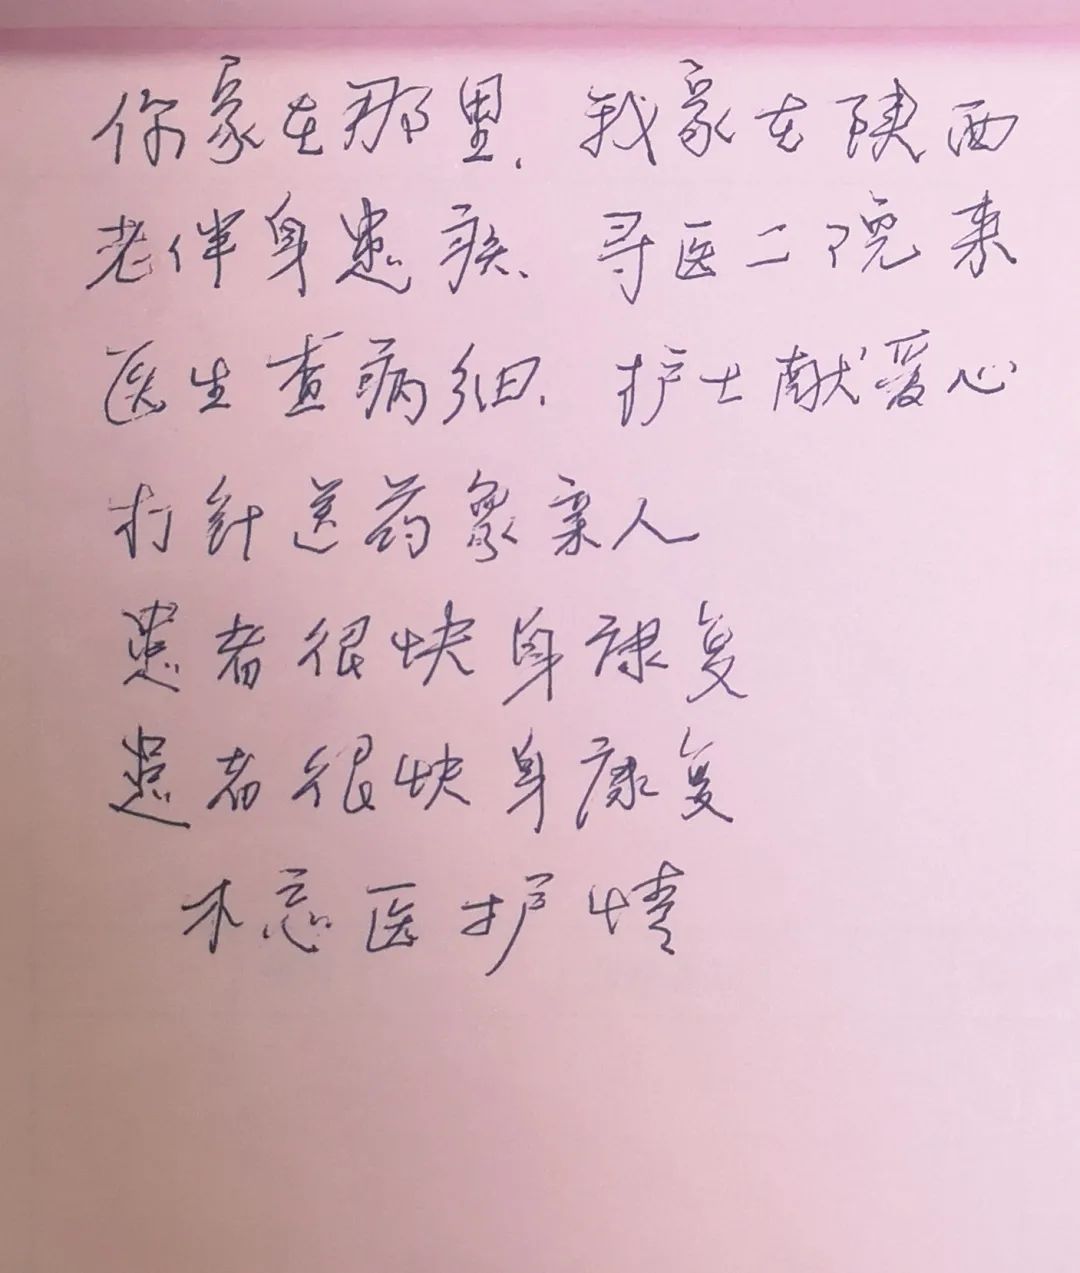 你家在那里. 我家在陕西
老伴身患疾. 寻医二院来
医生查病细. 护士献爱心
打针送药象亲人
患者很快身康复
患者很快身康复
不忘医护情